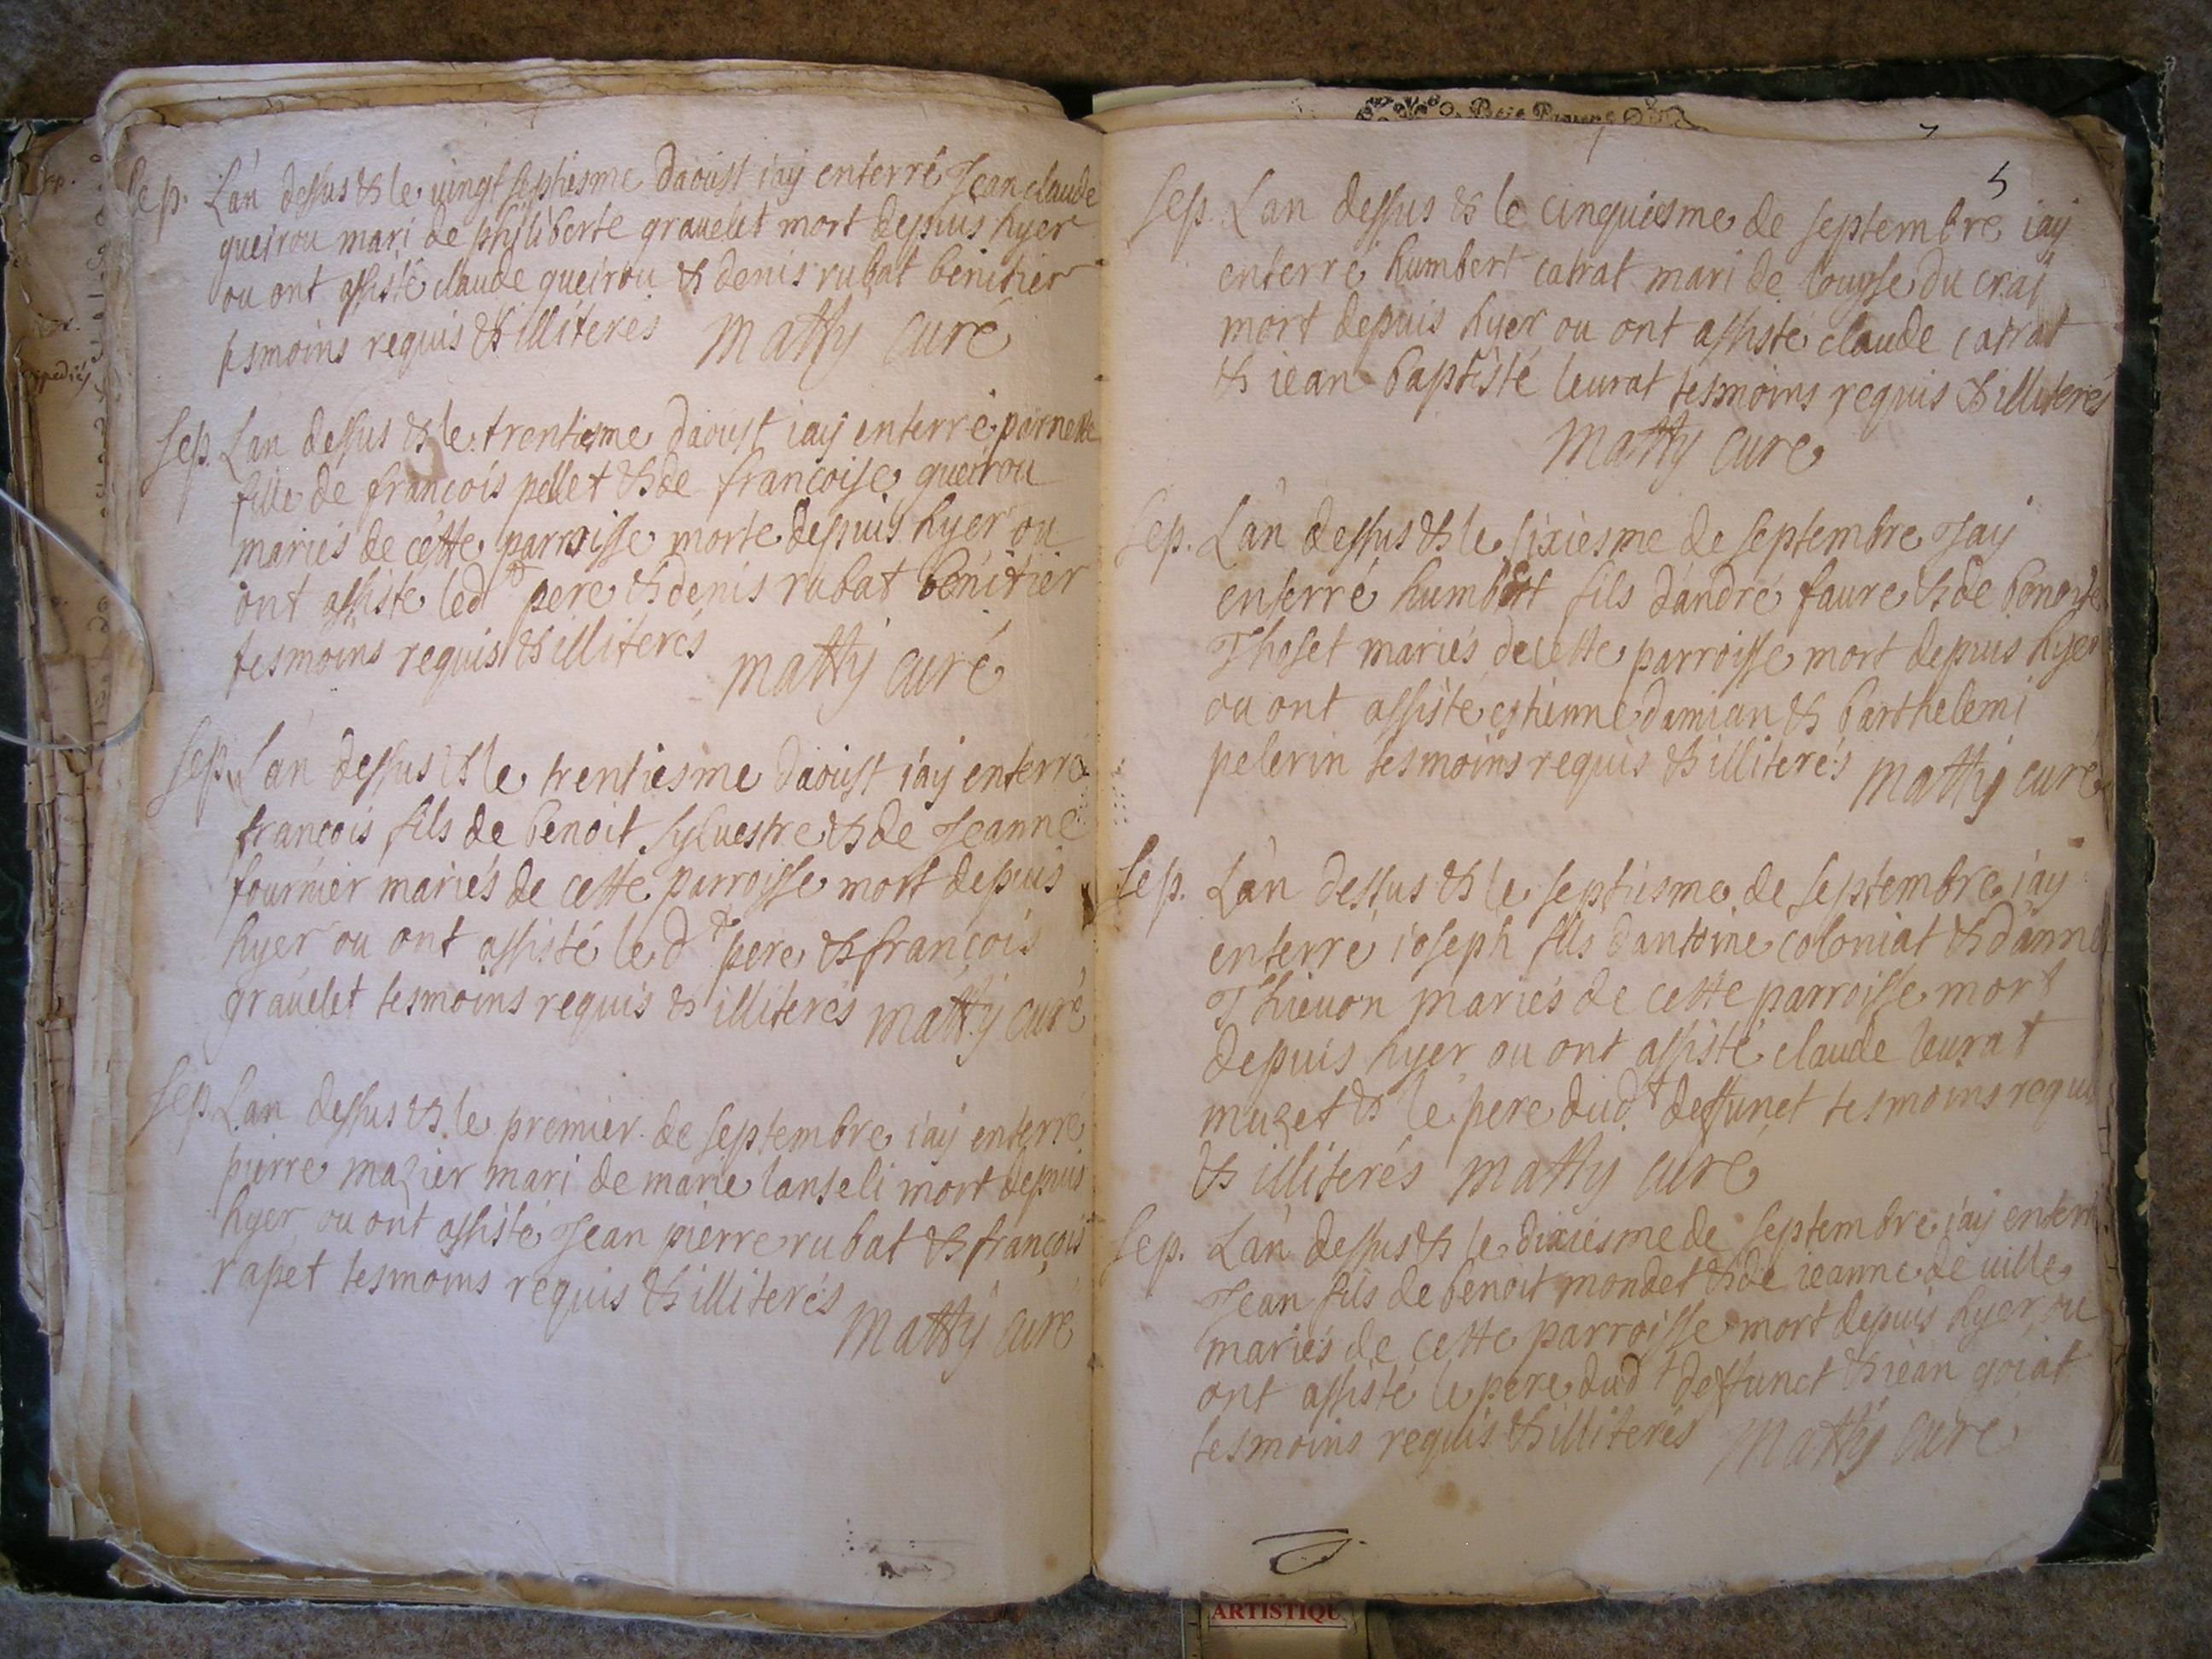 Sep. Lan dessus & le uingt septiesme daoust iay enterré Jean claude
queirou mari de philiberte grauelet mort depuis hyer
ou ont assisté claude queirou & denis rubat benitier
tesmoins requis & illiterés matty curé
Sep. Lan dessus & le trentiesme daoust iay enterré pernette
fille de françois pellet & de françoise queirou
mariés de cette parroisse morte depuis hyer ou
ont assisté led pere & denis rubat benitier
tesmoins requis & illiterés matty curé
Sep. Lan dessus & le trentiesme daoust iay enterré
françois fils de benoit syluestre & de Jeanne
fournier mariés de cette parroisse mort depuis
hyer ou ont assisté le dt pere & françois
grauelet tesmoins requis & illiterés matty curé
Sep. Lan dessus & le premier de septembre iay enterré
pierre mazier mari de marie lanseli mort depuis
hyer ou ont assisté Jean pierre rubat & françois
rapet tesmoins requis & illiterés
matty curé
Petit Papier
5
Sep. Lan dessus & le cinquiesme de septembre iay
enterré humbert catrat mari de louyse du crai
mort depuis hyer ou ont assisté claude catrat
& iean baptisté leurat tesmoins requis & illiterés
matty curé
Sep. Lan dessus & le sixiesme de septembre Jay
enterré humbert fils dandré faure & de benoite
Thoset mariés de cette parroisse mort depuis hyer
ou ont assisté estienne damian & barthelemi
pelerin tesmoins requis & illiterés matty curé
Sep. Lan dessus & le septiesme de septembre iay
enterré ioseph fils dantoine coloniat & danne
Thieuon mariés de cette parroisse mort
depuis hyer ou ont assisté claude leurat
muzet & le pere dudt deffunct tesmoins requis
& illiterés matty curé
Sep. Lan dessus & le dixiesme de septembre iay enterré
Jean fils de benoit mondet & de ieanne de uille
mariés de cette parroisse mort depuis hyer ou
ont assisté le pere dudt deffunct & iean goiat
tesmoins requis & illiterés matty curé
ARTISTIQU